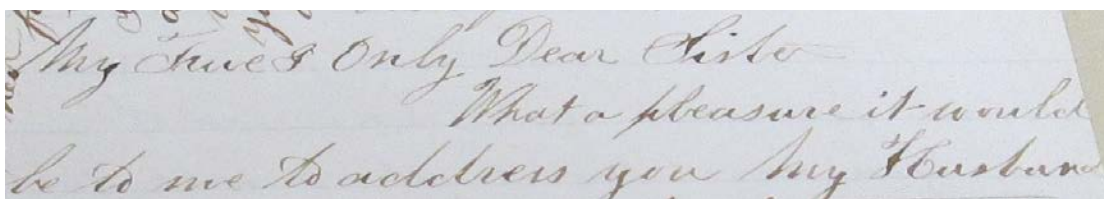 My True & Only Dear Sister
What a pleasure it would
be to me to address you My Husband